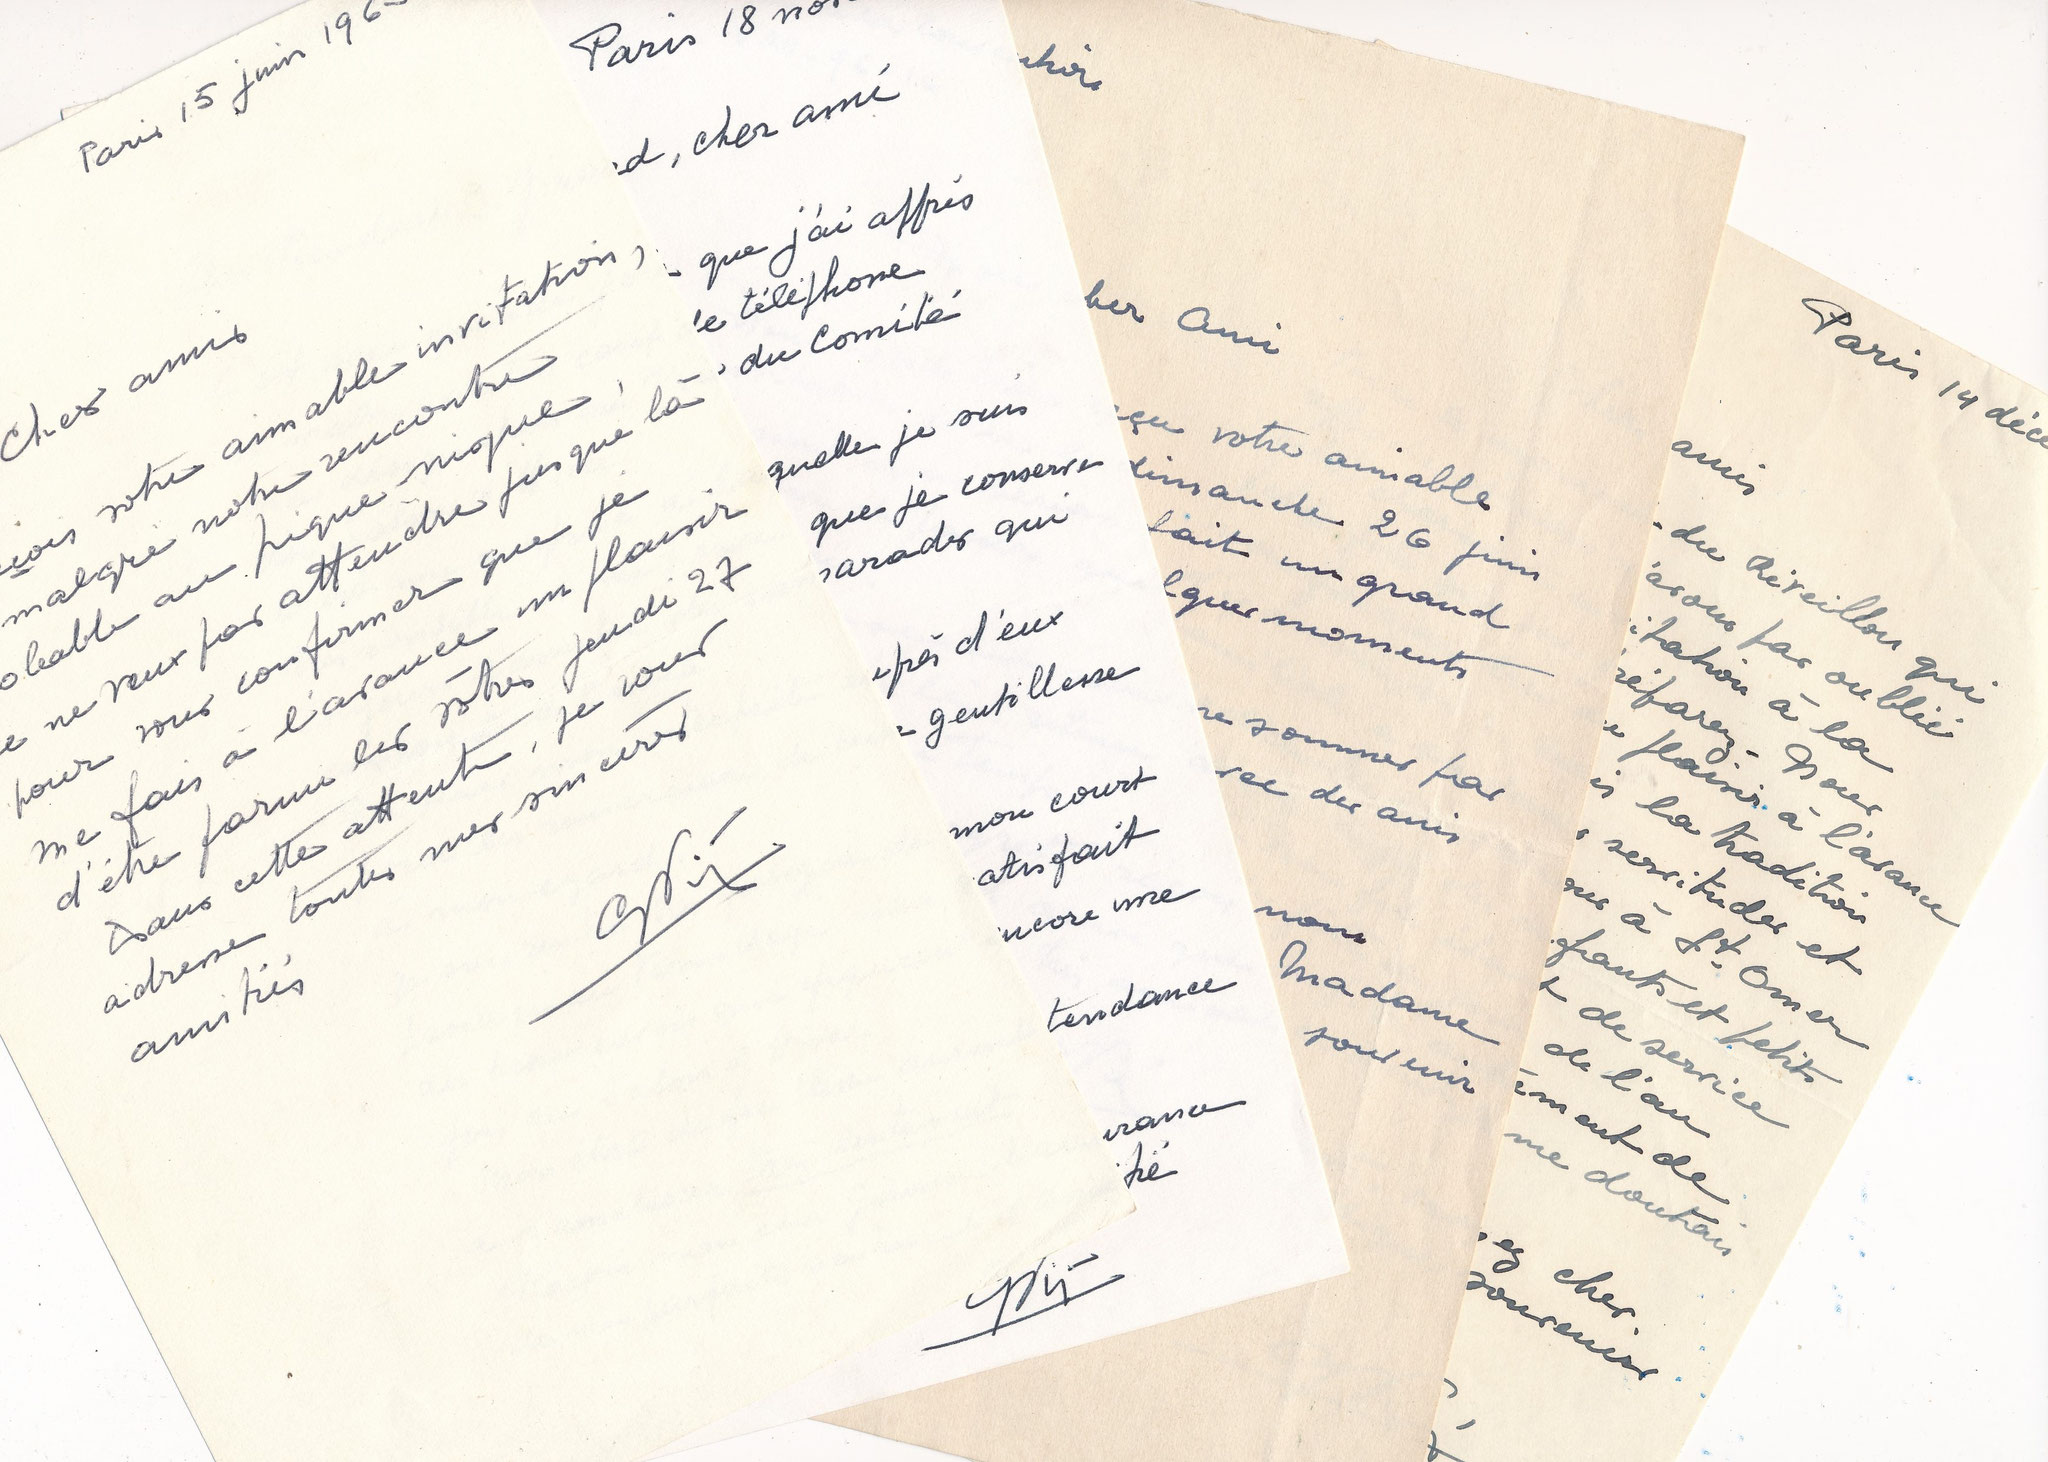 Paris 15 juin 196
Cher amis
votre aimable invitation,
malgré notre rencontre
au pique nique,
ne veux pas attendre jusque là
pour vous confirmer que je
me fais à l'avance un plaisir
d'être parmi les vôtres jeudi 27
Dans cette attente, je vous
adresse toutes mes sincères
amitiés
Paris 18 nov
d, cher ami
que j'ai appris
e téléphone
du Comité
quelle je suis
que je conserve
arades qui
près d'eux
gentillesse
mon court
atisfait
ncore une
tendance
urance
tié
her Ami
eçu votre aimable
dimanche 26 juin
fait un grand
lques moments
ne sommes pas
vec des amis
nous
Madame
souvenir
Paris 14 déce
amis
du Réveillon qui
avons pas oublié
itation à la
réparez. Nous
plaisir à l'avance
la tradition
servitudes et
à St. Omer
grands et petits
t de service
de l'an
ment de
me doutais
ez cher
souvenirs